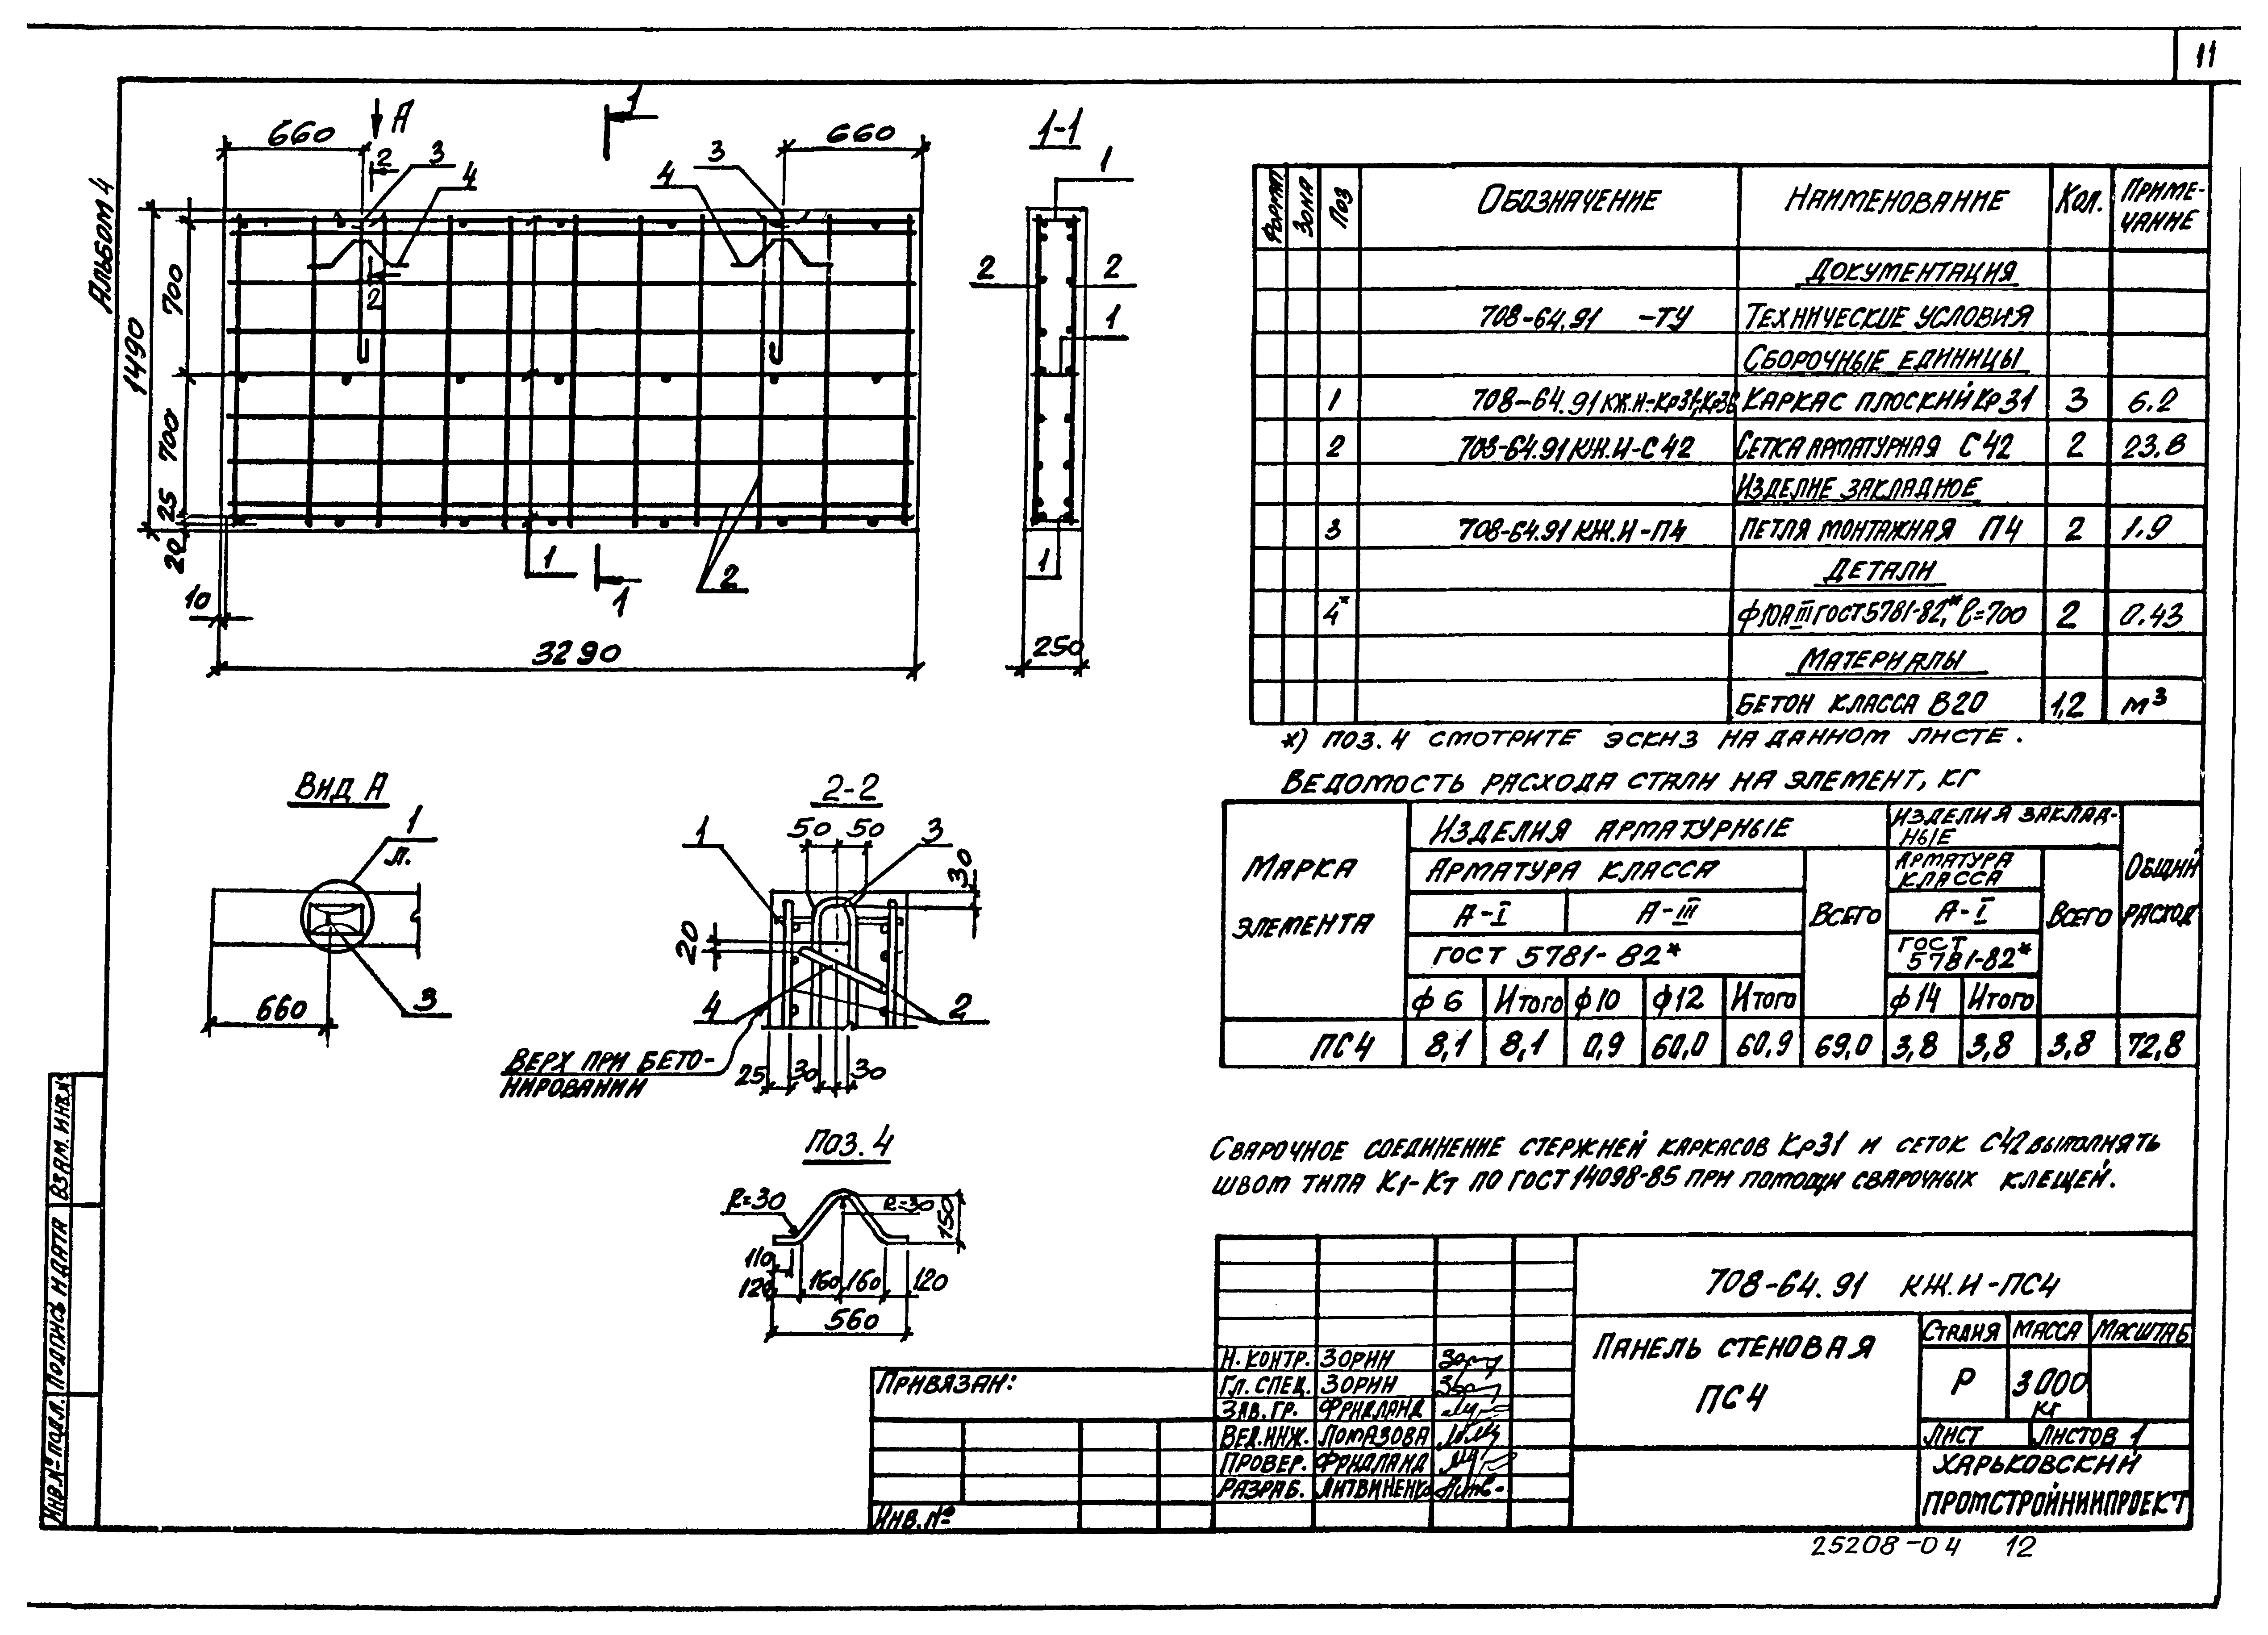 11
Альбом 4
660
А
1
660
2
3
4
3
4
2
1490
700
700
25
20
10
3290
1
1
2
1-1
1
2
2
1
1
250
Формат
Зона
Поз
Обозначение
Наименование
Кол.
Приме-
чание
Документация
708-64.91 -ТУ
Технические условия
Сборочные единицы
1
708-64.91 КЖ.И-Кр31;Кр36
Каркас плоский Кр31
3
6.2
2
708-64.91 КЖ.И-С42
Сетка арматурная С42
2
23.8
Изделие закладное
3
708-64.91 КЖ.И-П4
Петля монтажная П4
2
1.9
Детали
4*
ф10АIII ГОСТ 5781-82*, ℓ=700
2
0.43
Материалы
Бетон класса В20
1,2
м³
*) Поз. 4 смотрите эскиз на данном листе.
Ведомость расхода стали на элемент, кг
Марка
элемента
Изделия арматурные
Изделия заклад-
ные
Общий
расход
Арматура класса
Всего
Арматура
класса
Всего
А-I
А-III
А-I
ГОСТ 5781-82*
ГОСТ
5781-82*
ф6
Итого
ф10
ф12
Итого
ф14
Итого
ПС4
8,1
8,1
0,9
60,0
60,9
69,0
3,8
3,8
3,8
72,8
Вид А
1
л.
660
3
2-2
1
50
50
3
30
20
4
2
Верх при бето-
нировании
25
30
30
Поз. 4
R=30
R=30
150
110
120
160
160
120
560
Сварочное соединение стержней каркасов Кр31 и сеток С42 выполнять
швом типа К1-Кт по ГОСТ 14098-85 при помощи сварочных клещей.
708-64.91 КЖ.И-ПС4
Панель стеновая
ПС4
Стадия
Масса
Масштаб
Р
3000
кг
Лист
Листов 1
Харьковский
Промстройниипроект
Н. контр. Зорин
Гл. спец. Зорин
Зав. гр. Фридланд
Вед. инж. Ломазова
Провер. Фридланд
Разраб. Литвиненко
Привязан:
Инв. №
Взам. инв. №
Подпись и дата
Инв. № подл.
25208-04 12